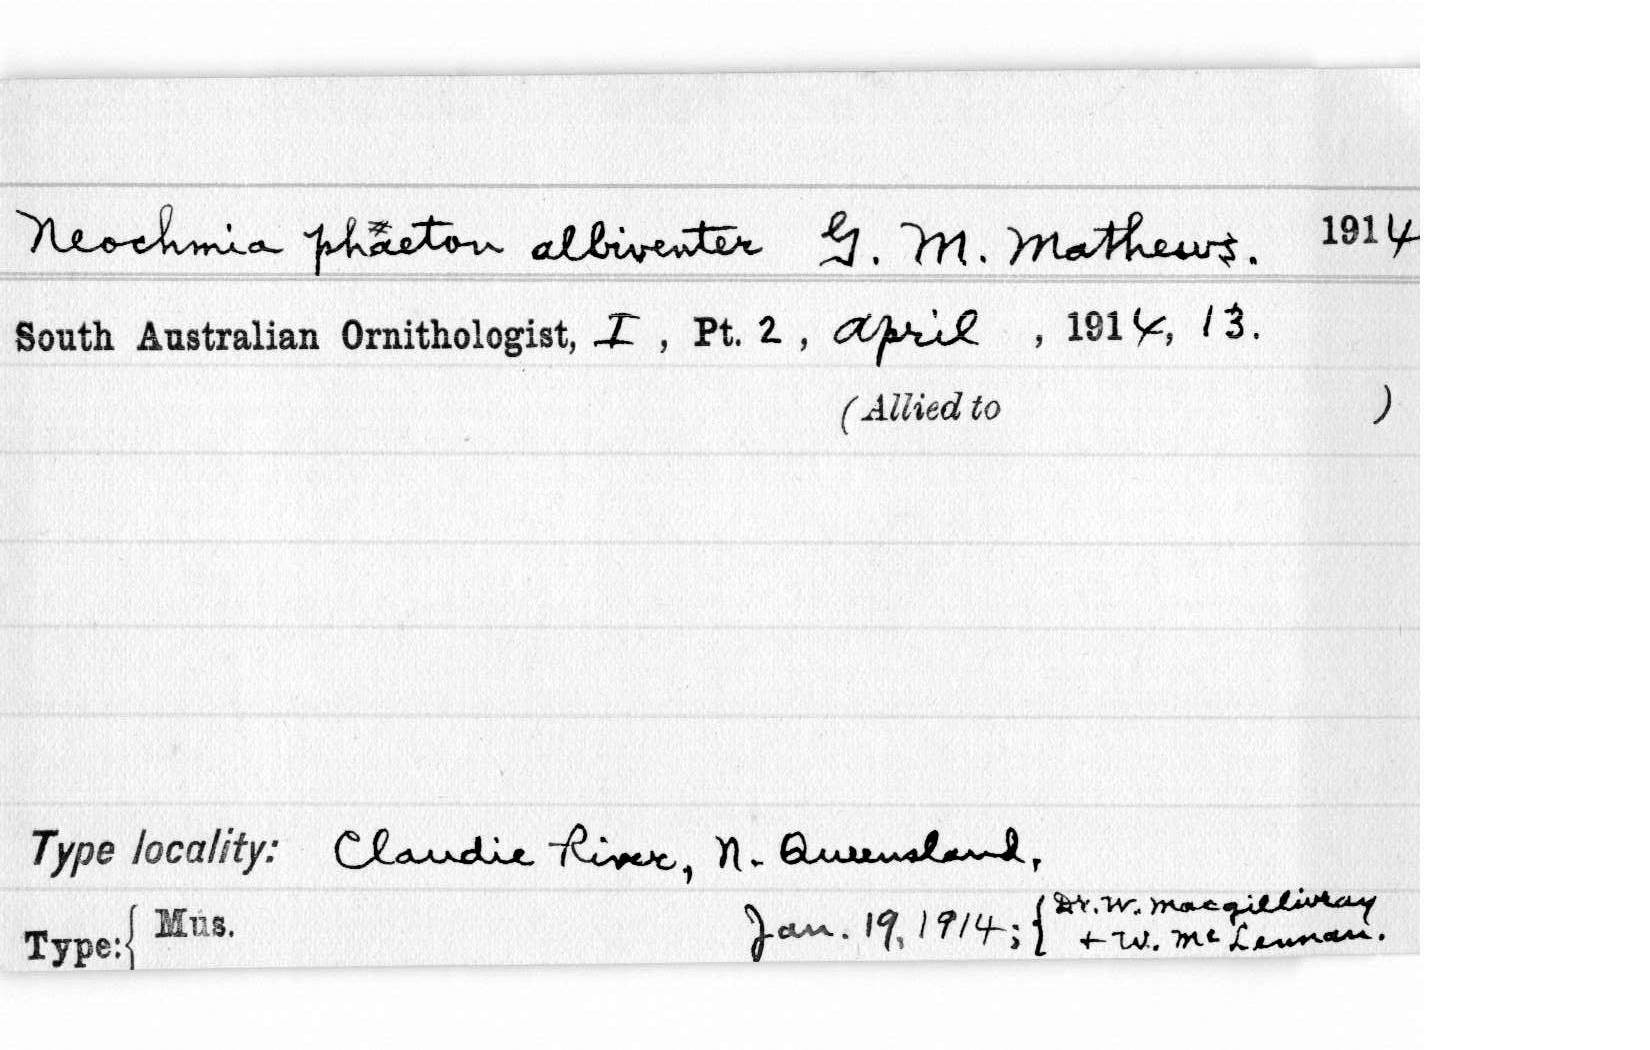 Neochmia phaeton albiventer G. M. Mathews. 1914
South Australian Ornithologist, I, Pt. 2, April, 1914, 13.
(Allied to )
Type locality: Claudie River, N. Queensland,
Type: { Mus. Jan. 19, 1914; { Dr. W. Macgillivray
+ W. McLennan.